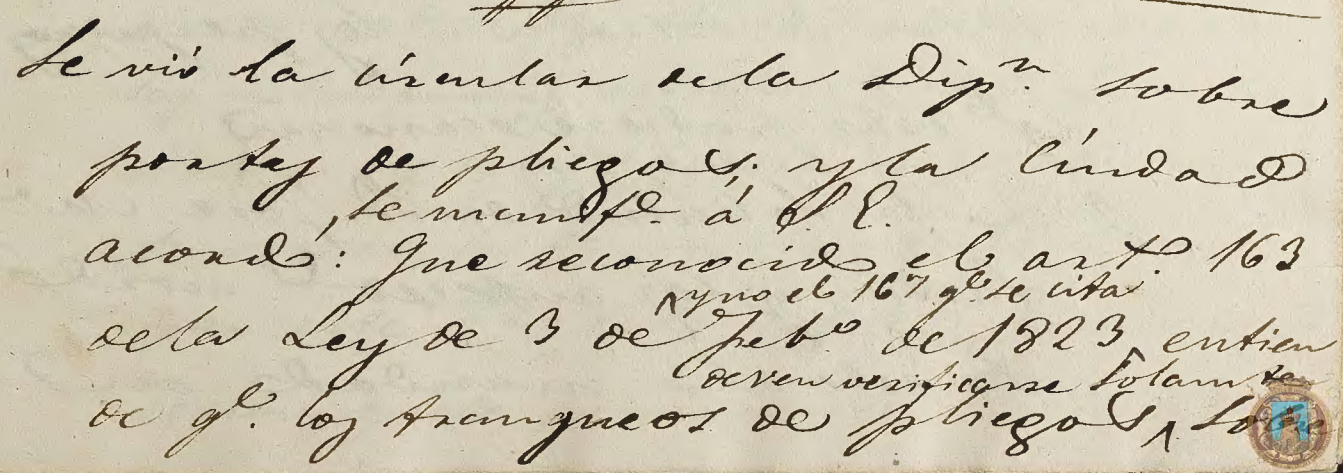 Se vió la circular de la Dip.n sobre
portes de pliegos; y la Ciudad
se manif.e á S. E.
acordó: Que reconocido el art.o 163
y no el 167 q.e se cita
de la Ley de 3 de Feb.o de 1823, entien
deven verificarse solam.te
de q.e los franqueos de pliegos